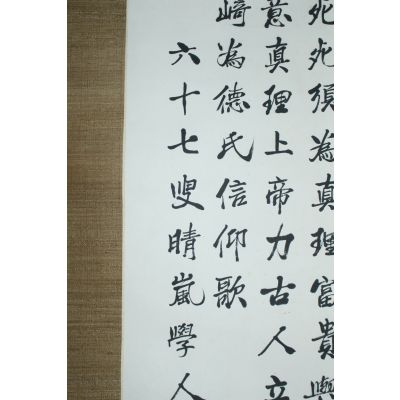 死死須為真理富貴與
意真理上帝力古人立
崎為德氏信仰歌
六十七叟晴嵐學人